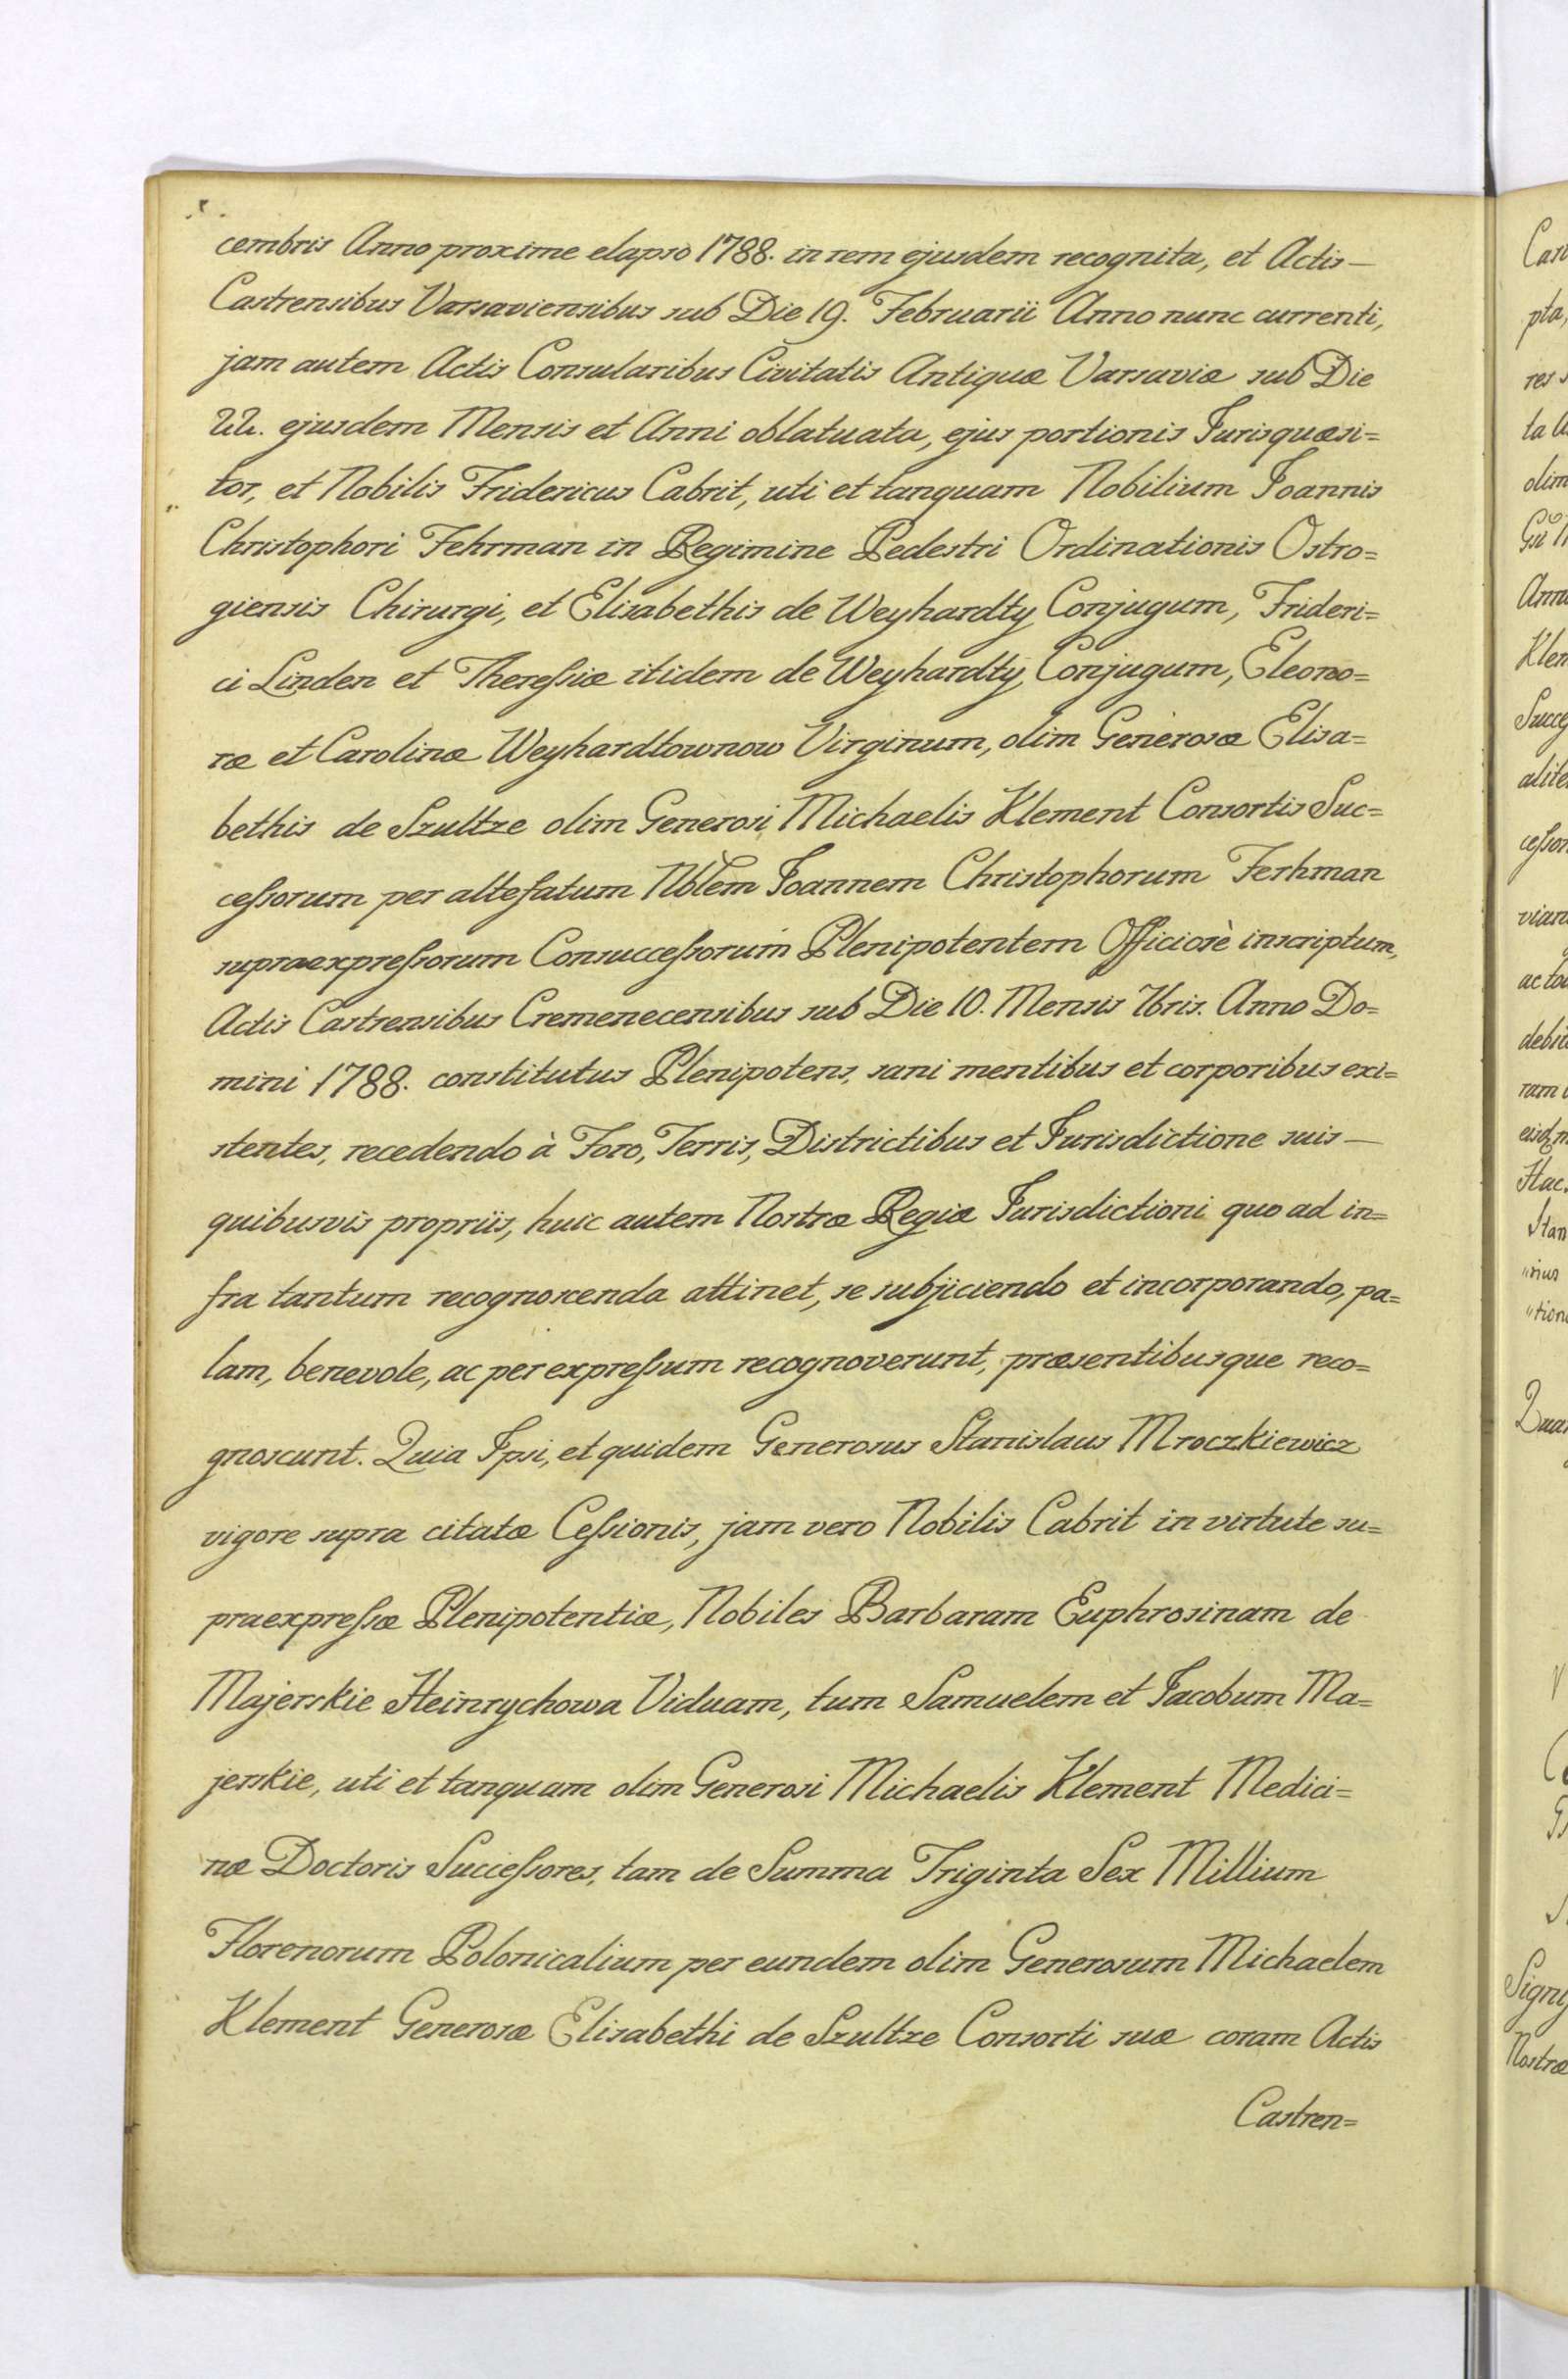 cembris Anno proxime elapso 1788. in rem ejusdem recognita, et Actis —
Castrensibus Varsaviensibus sub Die 19. Februarii Anno nunc currenti,
jam autem Actis Consularibus Civitatis Antiquæ Varsaviæ sub Die
22. ejusdem Mensis et Anni oblatuata, ejus portionis Jurisquæsi=
tor, et Nobilis Fridericus Cabrit, uti et tanquam Nobilium Joannis
Christophori Fehrman in Regimine Pedestri Ordinationis Ostro=
giensis Chirurgi, et Elisabethis de Weyhardty Conjugum, Frideri=
ci Linden et Theresiæ itidem de Weyhardty Conjugum, Eleono=
ræ et Carolinæ Weyhardtownow Virginum, olim Generosæ Elisa=
bethis de Szultze olim Generosi Michaelis Klement Consortis Suc=
cessorum per attefatum Nblem Joannem Christophorum Ferhman
supraexpressorum Consuccessorum Plenipotentem Officiosè inscriptum,
Actis Castrensibus Cremenecensibus sub Die 10. Mensis 7bris. Anno Do=
mini 1788. constitutus Plenipotens, sani mentibus et corporibus exi=
stentes, recedendo à Foro, Terris, Districtibus et Jurisdictione suis —
quibusvis propriis, huic autem Nostræ Regiæ Jurisdictioni quo ad in=
fra tantum recognoscenda attinet, se subjiciendo et incorporando, pa=
lam, benevole, ac per expressum recognoverunt, præsentibusque reco=
gnoscunt. Quia Ipsi, et quidem Generosus Stanislaus Mroczkiewicz
vigore supra citatæ Cessionis, jam vero Nobilis Cabrit in virtute su=
praexpressæ Plenipotentiæ, Nobiles Barbaram Euphrosinam de
Majerskie Heinrychowa Viduam, tum Samuelem et Jacobum Ma=
jerskie, uti et tanquam olim Generosi Michaelis Klement Medici=
næ Doctoris Successores, tam de Summa Triginta Sex Millium
Florenorum Polonicalium per eundem olim Generosum Michaelem
Klement Generosæ Elisabethi de Szultze Consorti suæ coram Actis
Castren=